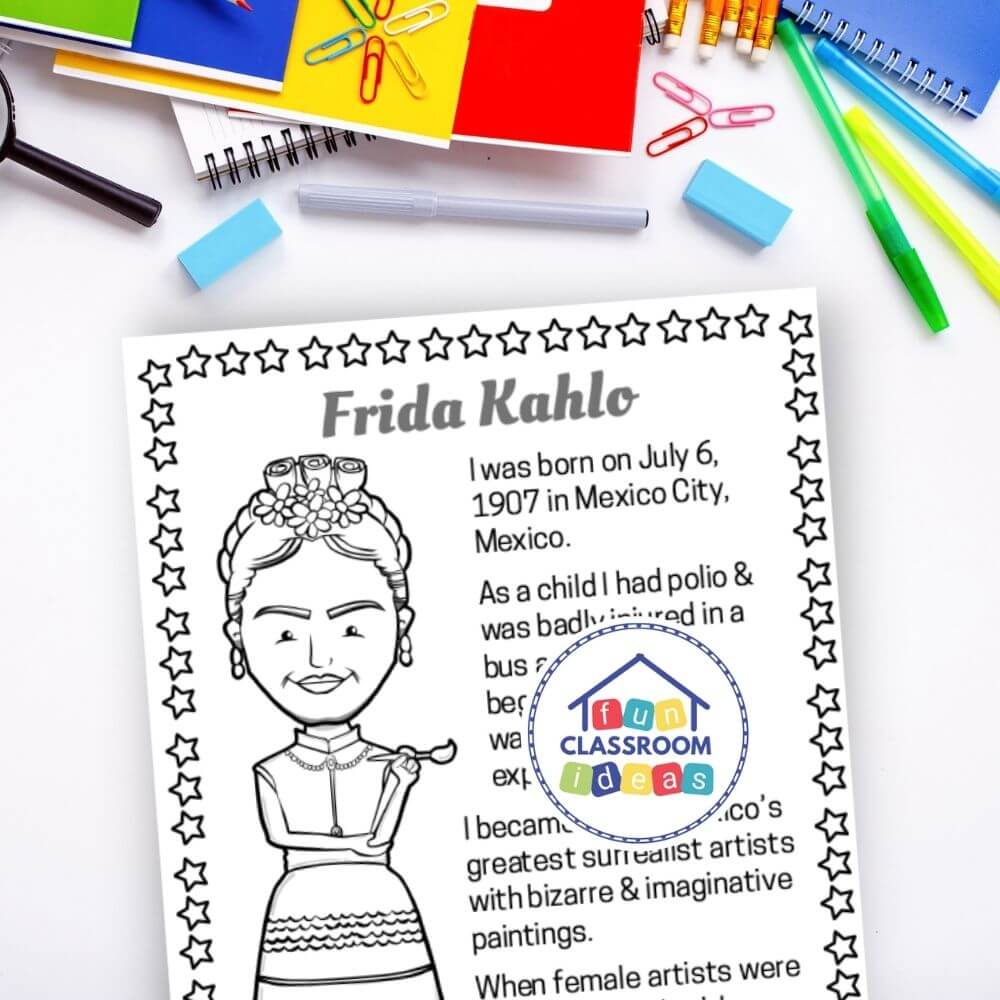 Frida Kahlo
I was born on July 6,
1907 in Mexico City,
Mexico.
As a child I had polio &
was badly injured in a
bus
I became
greatest surrealist artists
with bizarre & imaginative
paintings.
When female artists were
fun
CLASSROOM
ideas